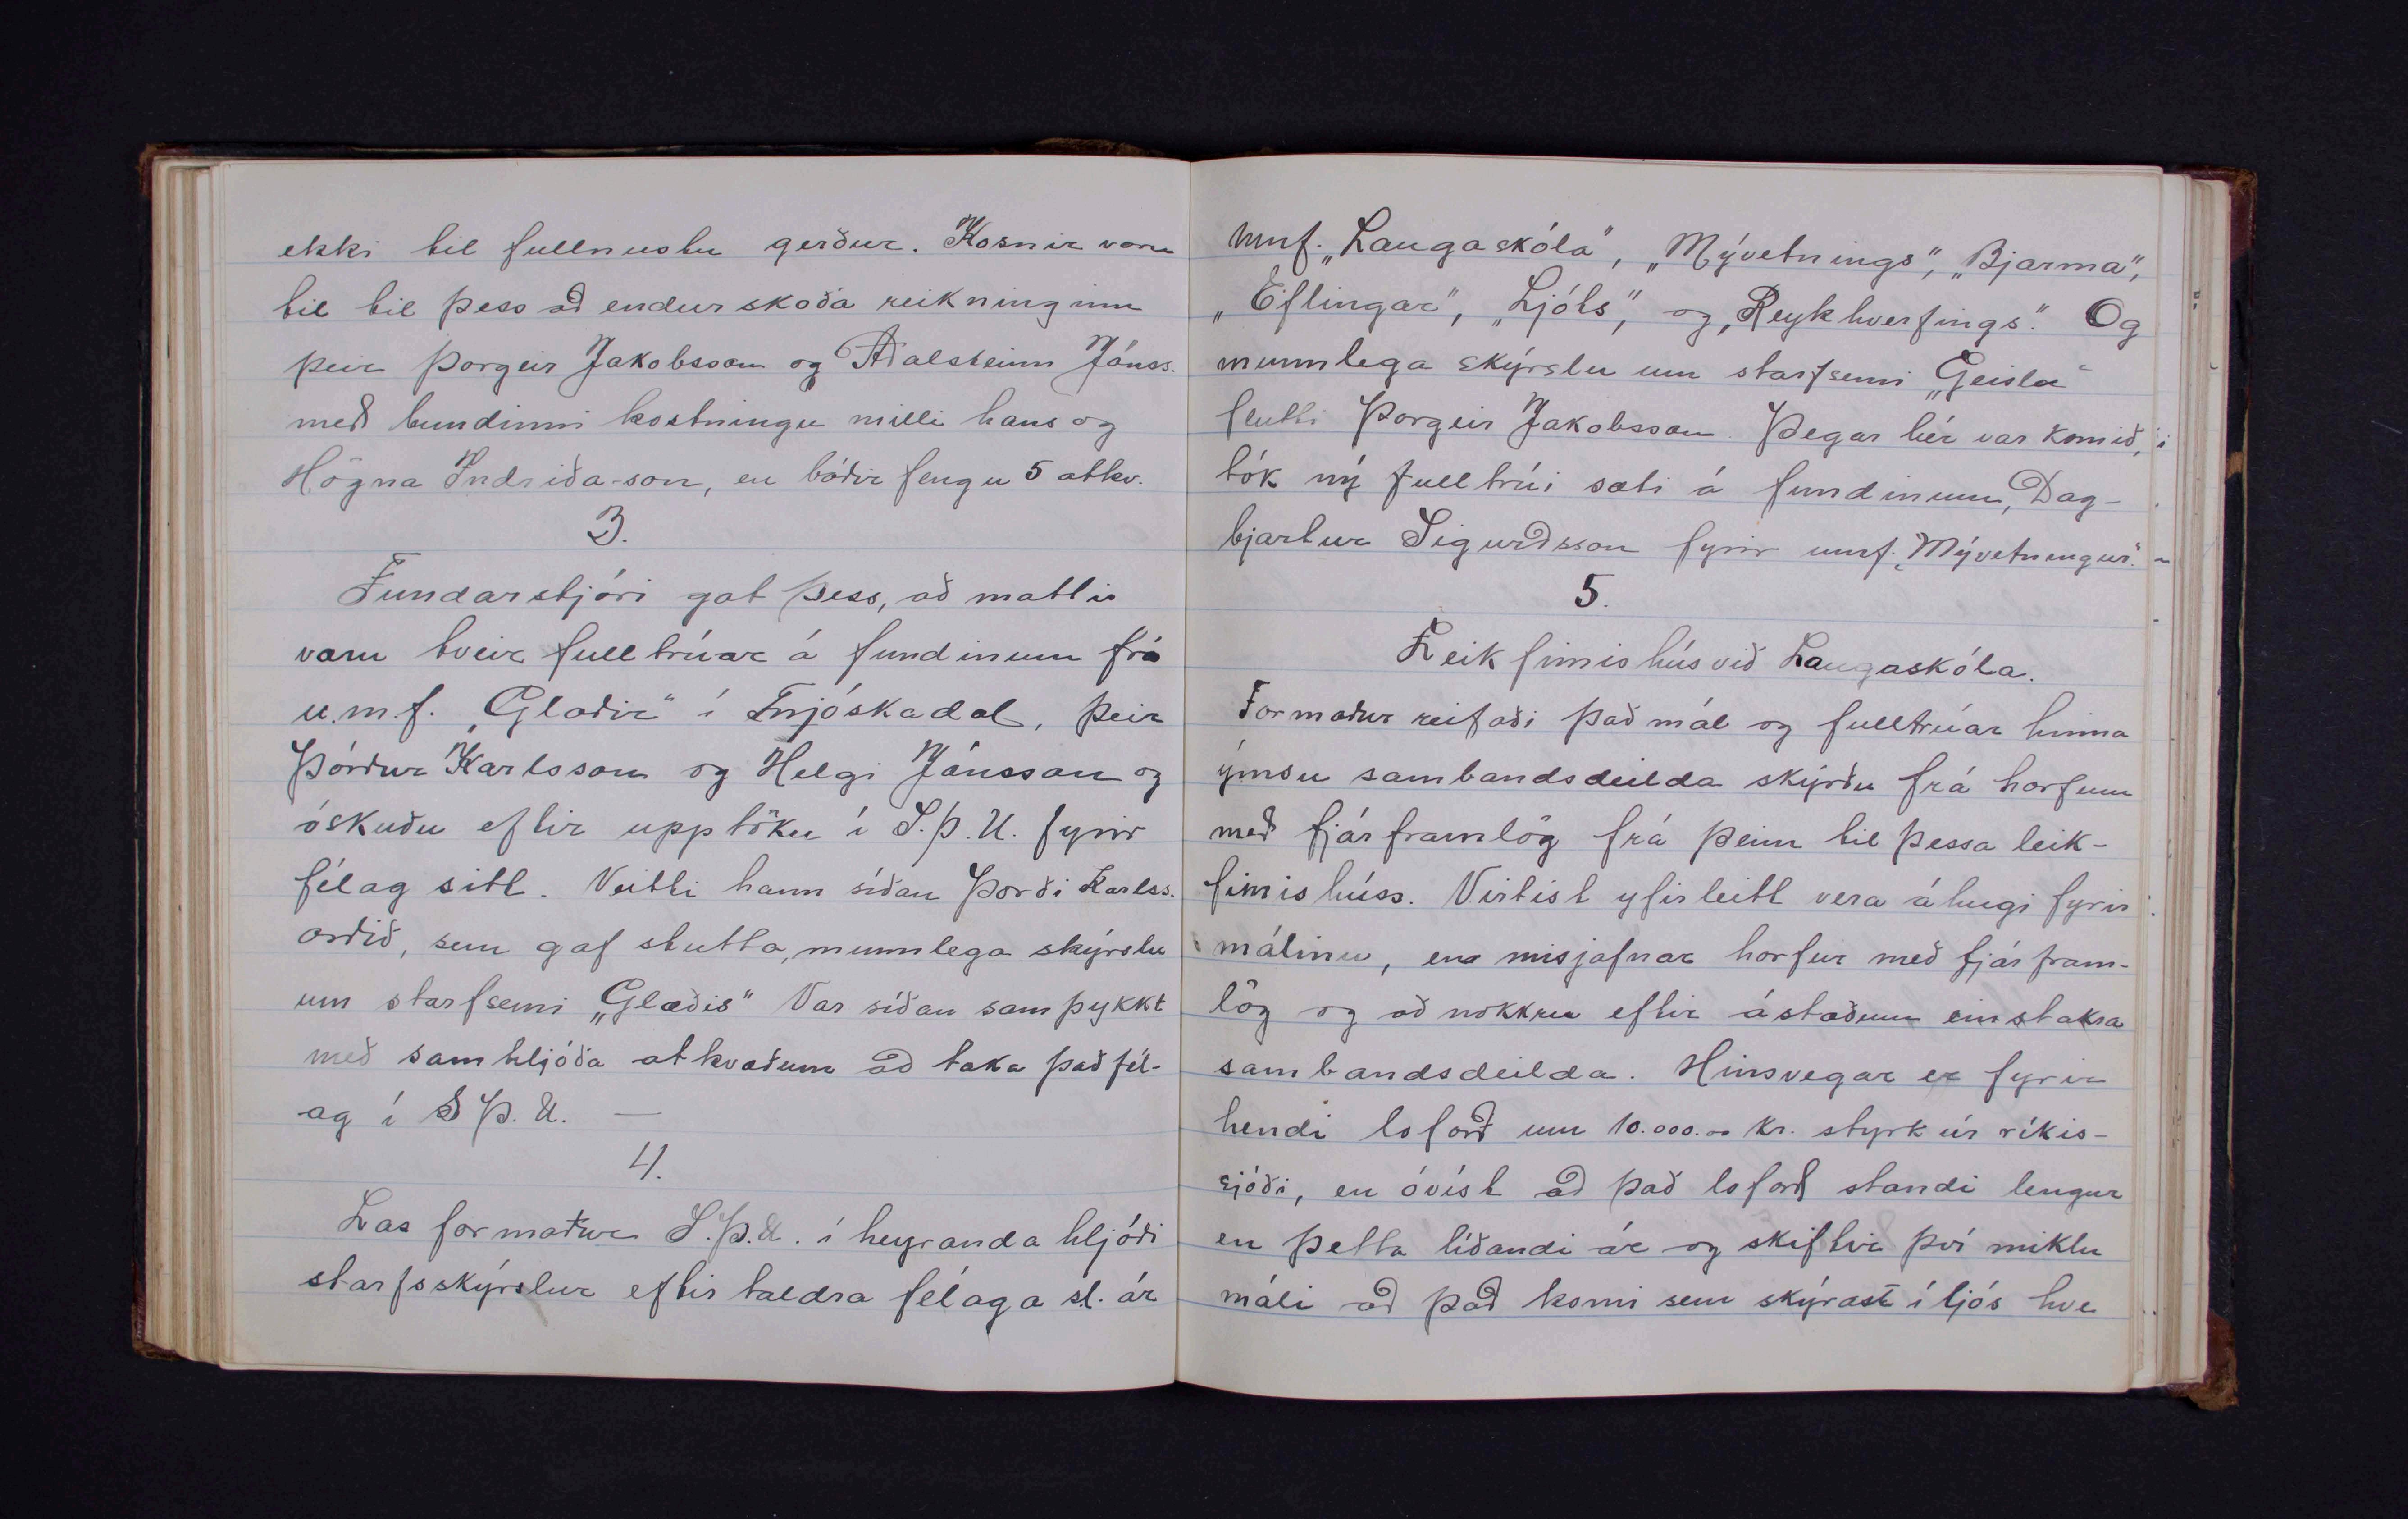 ekki til fullnustu gerður. Kosnir voru
til til þess að endurskoða reikninginn
þeir Þorgeir Jakobsson og Aðalsteinn Jónss.
með bundinni kostningu milli hans og
Högna Indriða-son, en báðir fengu 5 atkv.
3.
Fundarstjóri gat þess, að mættir
voru tveir fulltrúar á fundinum frá
u.m.f. „Glæðir" í Fnjóskadal, þeir
Þórður Karlsson og Helgi Jónsson og
óskuðu eftir upptöku í S.Þ.U. fyrir
félag sitt. Veitti hann síðan Þorði Karlss.
orðið, sem gaf stutta, munnlega skýrslu
um starfsemi „Glæðis" Var síðan samþykkt
með samhljóða atkvæðum að taka það fél-
ag í S Þ. U. —
4.
Las formaður S.Þ.U. í heyranda hljóði
starfsskýrslur eftirtaldra félaga sl. ár
Umf. „Laugaskóla", „Mývetnings", „Bjarma",
„Eflingar", „Ljóts", og „Reykhverfings". Og
munnlega skýrslu um starfsemi „Geisla"
flutti Þorgeir Jakobsson. Þegar hér var komið,
tók ný fulltrúi sæti á fundinum, Dag-
bjartur Sigurðsson fyrir umf. „Mývetningur".
5.
Leikfimishús við Laugaskóla.
Formaður reifaði það mál og fulltrúar hinna
ýmsu sambandsdeilda skýrðu frá horfum
með fjárframlög frá þeim til þessa leik-
fimishúss. Virtist yfirleitt vera áhugi fyrir
málinu, en misjafnar horfur með fjárfram-
lög og að nokkru eftir ástæðum einstakra
sambandsdeilda. Hinsvegar er fyrir
hendi loforð um 10.000.- kr. styrk úr ríkis-
sjóði, en óvíst að það loforð standi lengur
en þetta líðandi ár og skiftir því miklu
máli að það komi sem skýrast í ljós hve